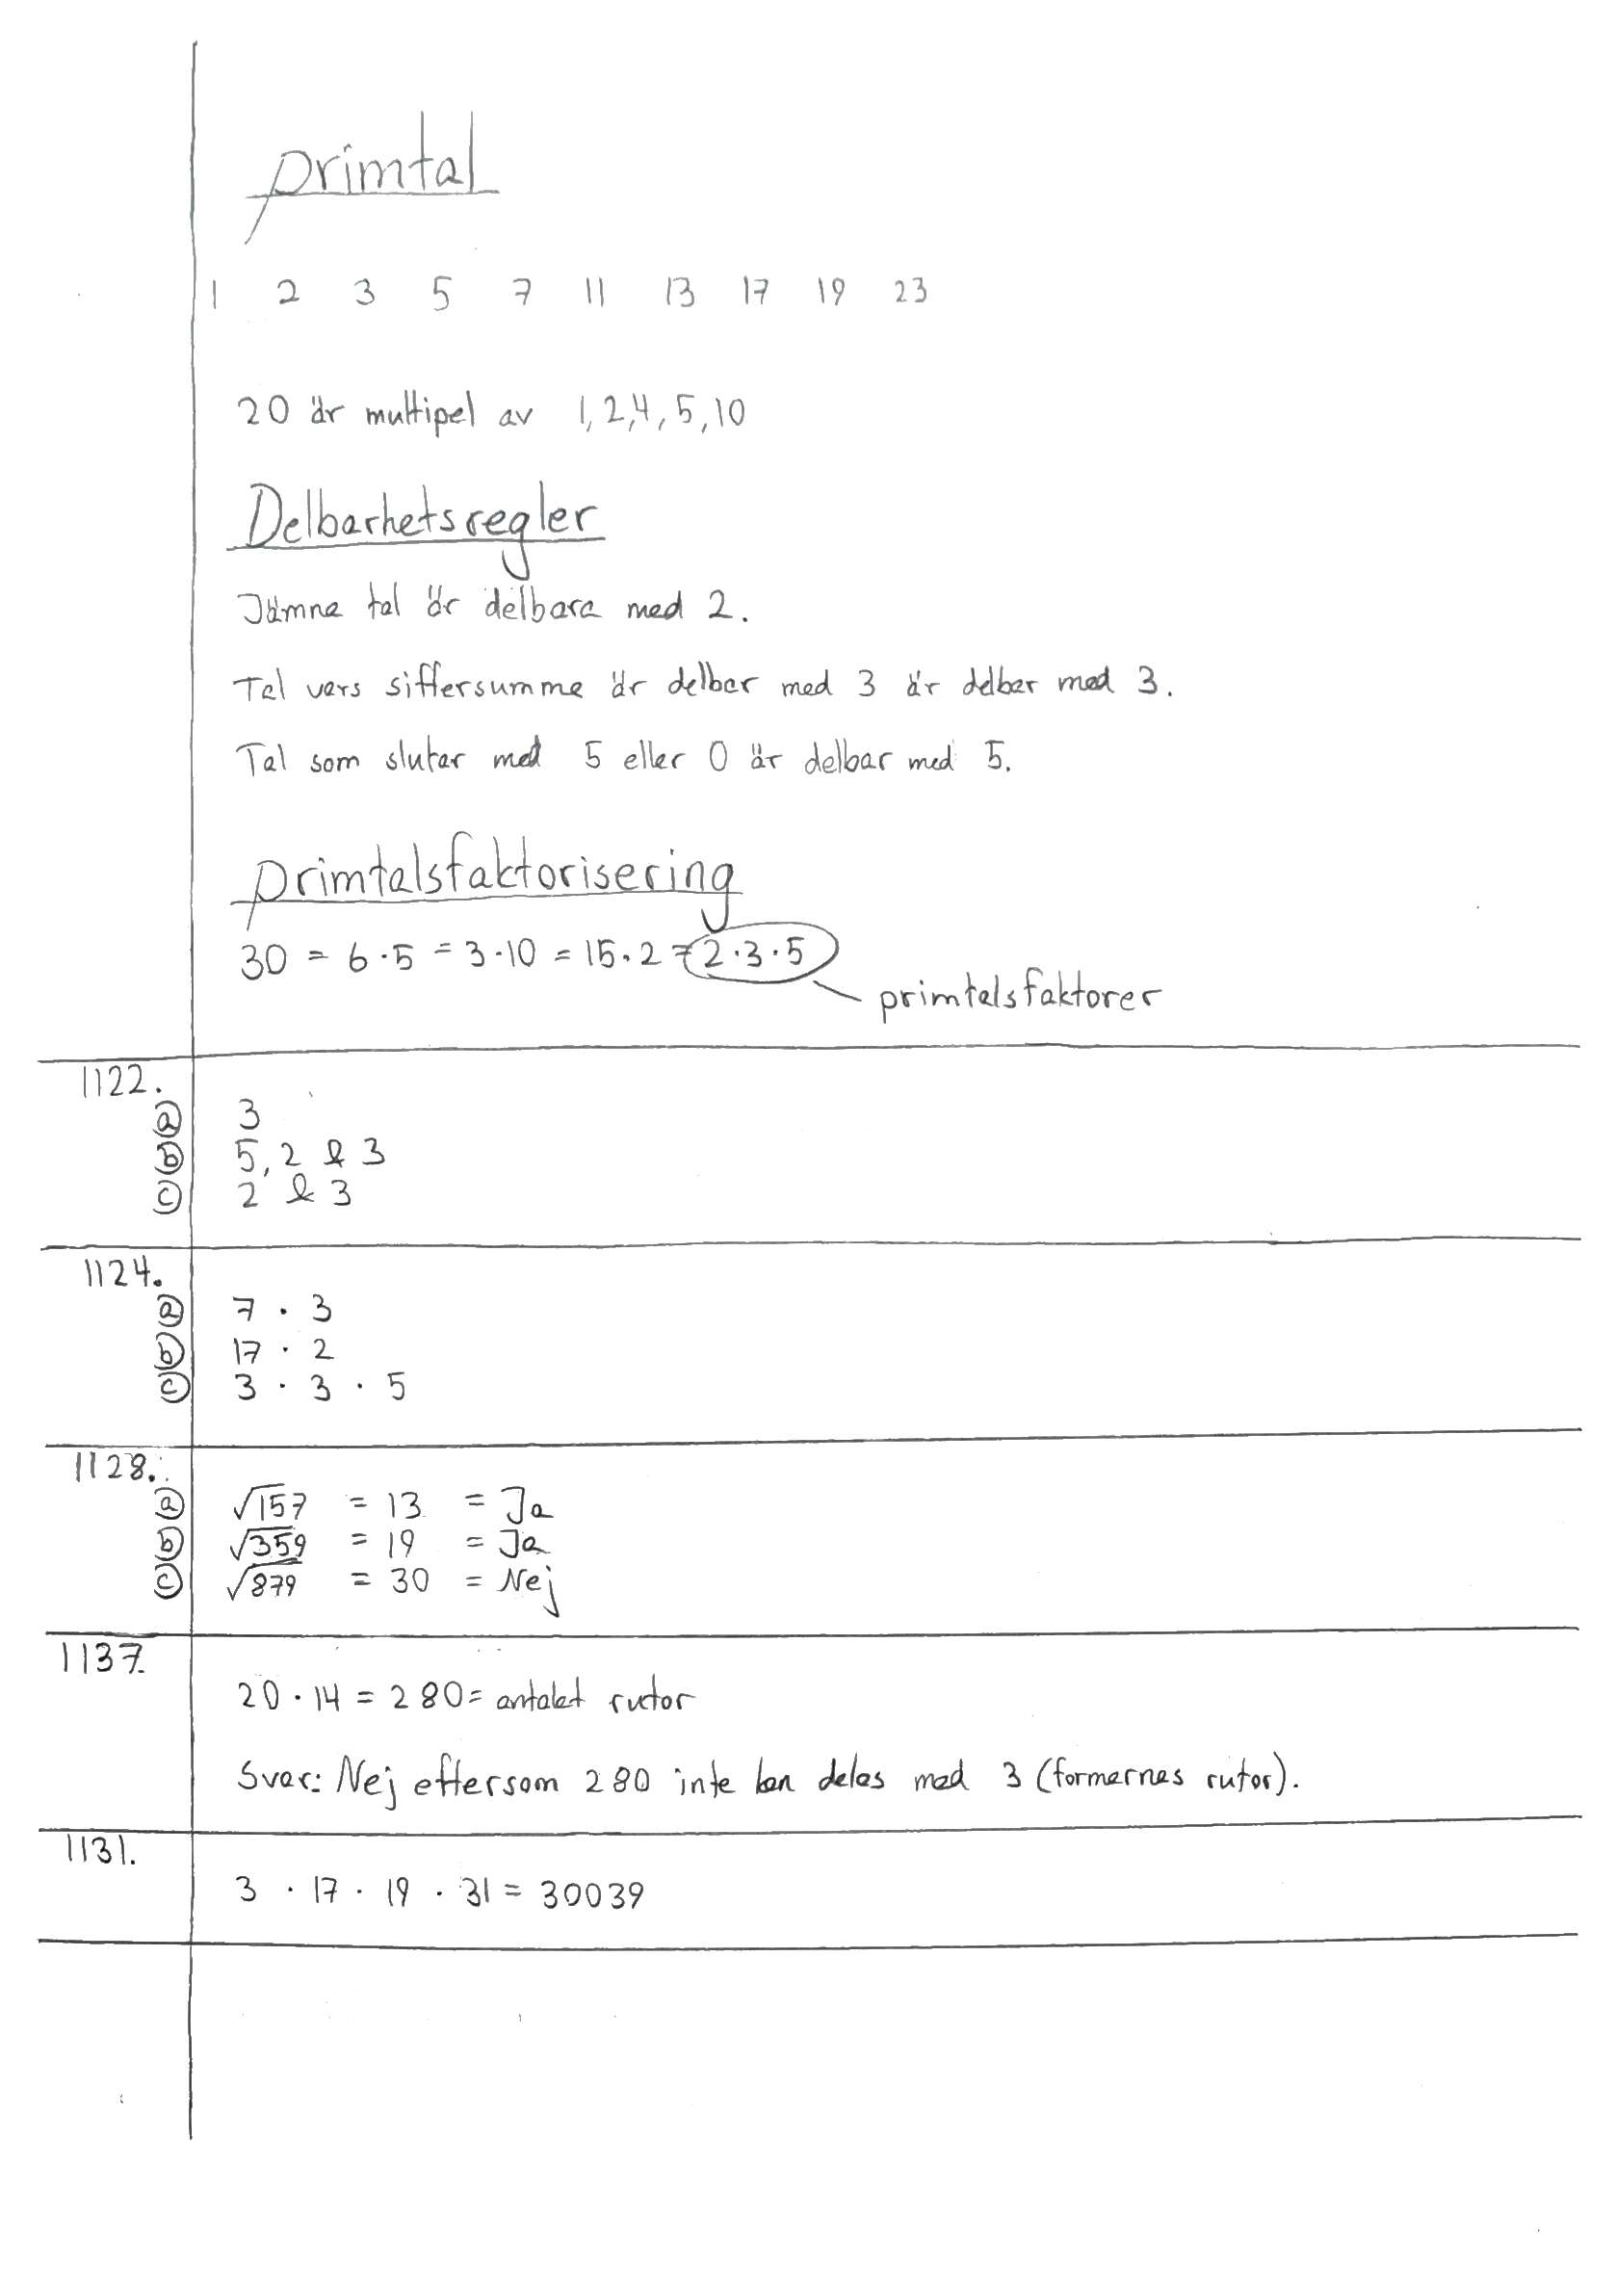 primtal
1 2 3 5 7 11 13 17 19 23
20 är multipel av 1, 2, 4, 5, 10
Delbarhetsregler
Jämna tal är delbara med 2.
Tal vars siffersumma är delbar med 3 är delbar med 3.
Tal som slutar med 5 eller 0 är delbar med 5.
primtalsfaktorisering
30 = 6 · 5 = 3 · 10 = 15 · 2 = 2 · 3 · 5
primtalsfaktorer
1122.
a 3
b 5, 2 & 3
c 2 & 3
1124.
a 7 · 3
b 17 · 2
c 3 · 3 · 5
1128.
a √157 = 13 = Ja
b √359 = 19 = Ja
c √879 = 30 = Nej
1137.
20 · 14 = 280 = antalet rutor
Svar: Nej eftersom 280 inte kan delas med 3 (formernas rutor).
1131.
3 · 17 · 19 · 31 = 30039